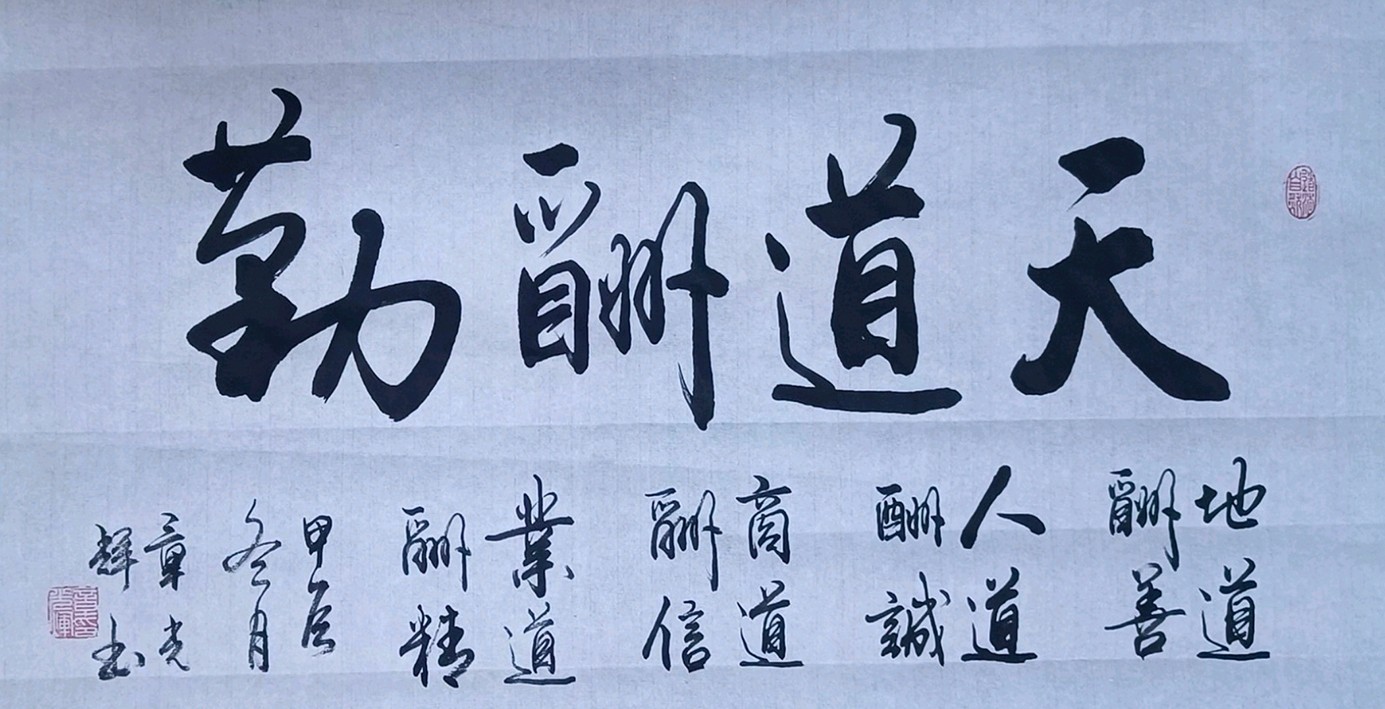 天道酬勤
地道
酬善
人道
酬誠
商道
酬信
業道
酬精
甲辰
冬月
章光
輝书